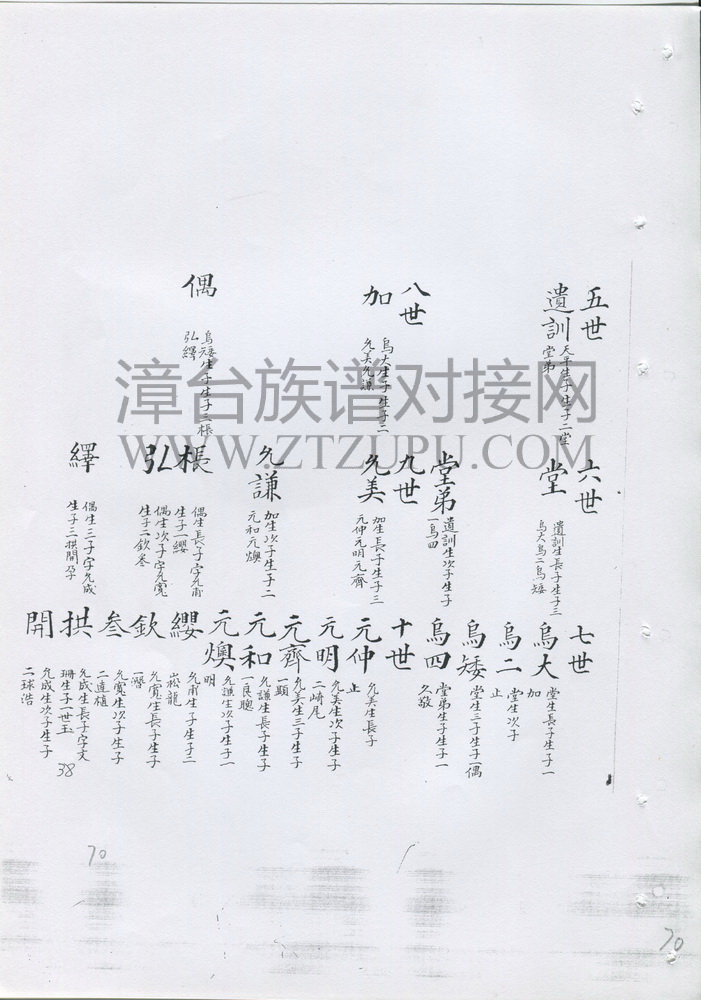 五世
遺訓
天平生子生子二堂
堂弟
六世
堂
遺訓生長子生子三
烏大烏二烏矮
堂弟
遺訓生次子生子
一烏四
七世
烏大
堂生長子生子一
加
烏二
堂生次子
止
烏矮
堂生三子生子一偶
烏四
堂弟生子生子一
久敬
八世
加
烏大生子生子二
允美允謙
偶
烏矮生子生子三棖
弘繹
九世
允美
加生長子生子三
元仲元明元齊
允謙
加生次子生子二
元和元燠
棖
偶生長子字允甫
生子一纓
弘
偶生次子字允寬
生子二欽叁
繹
偶生三子字允成
生子三拱開孕
十世
元仲
允美生長子
止
元明
允美生次子生子
二崎尾
元齊
允美生三子生子
一顯
元和
允謙生長子生子
一良聰
元燠
允謙生次子生子一
明
纓
允甫生子生子二
崧龍
欽
允寬生長子生子
一
叁
允寬生次子生子
二道植
拱
允成生長子字文
珊生子一世玉
開
允成生次子生子
二球浩
38
70
70
漳台族谱对接网
WWW.ZTZUPU.COM